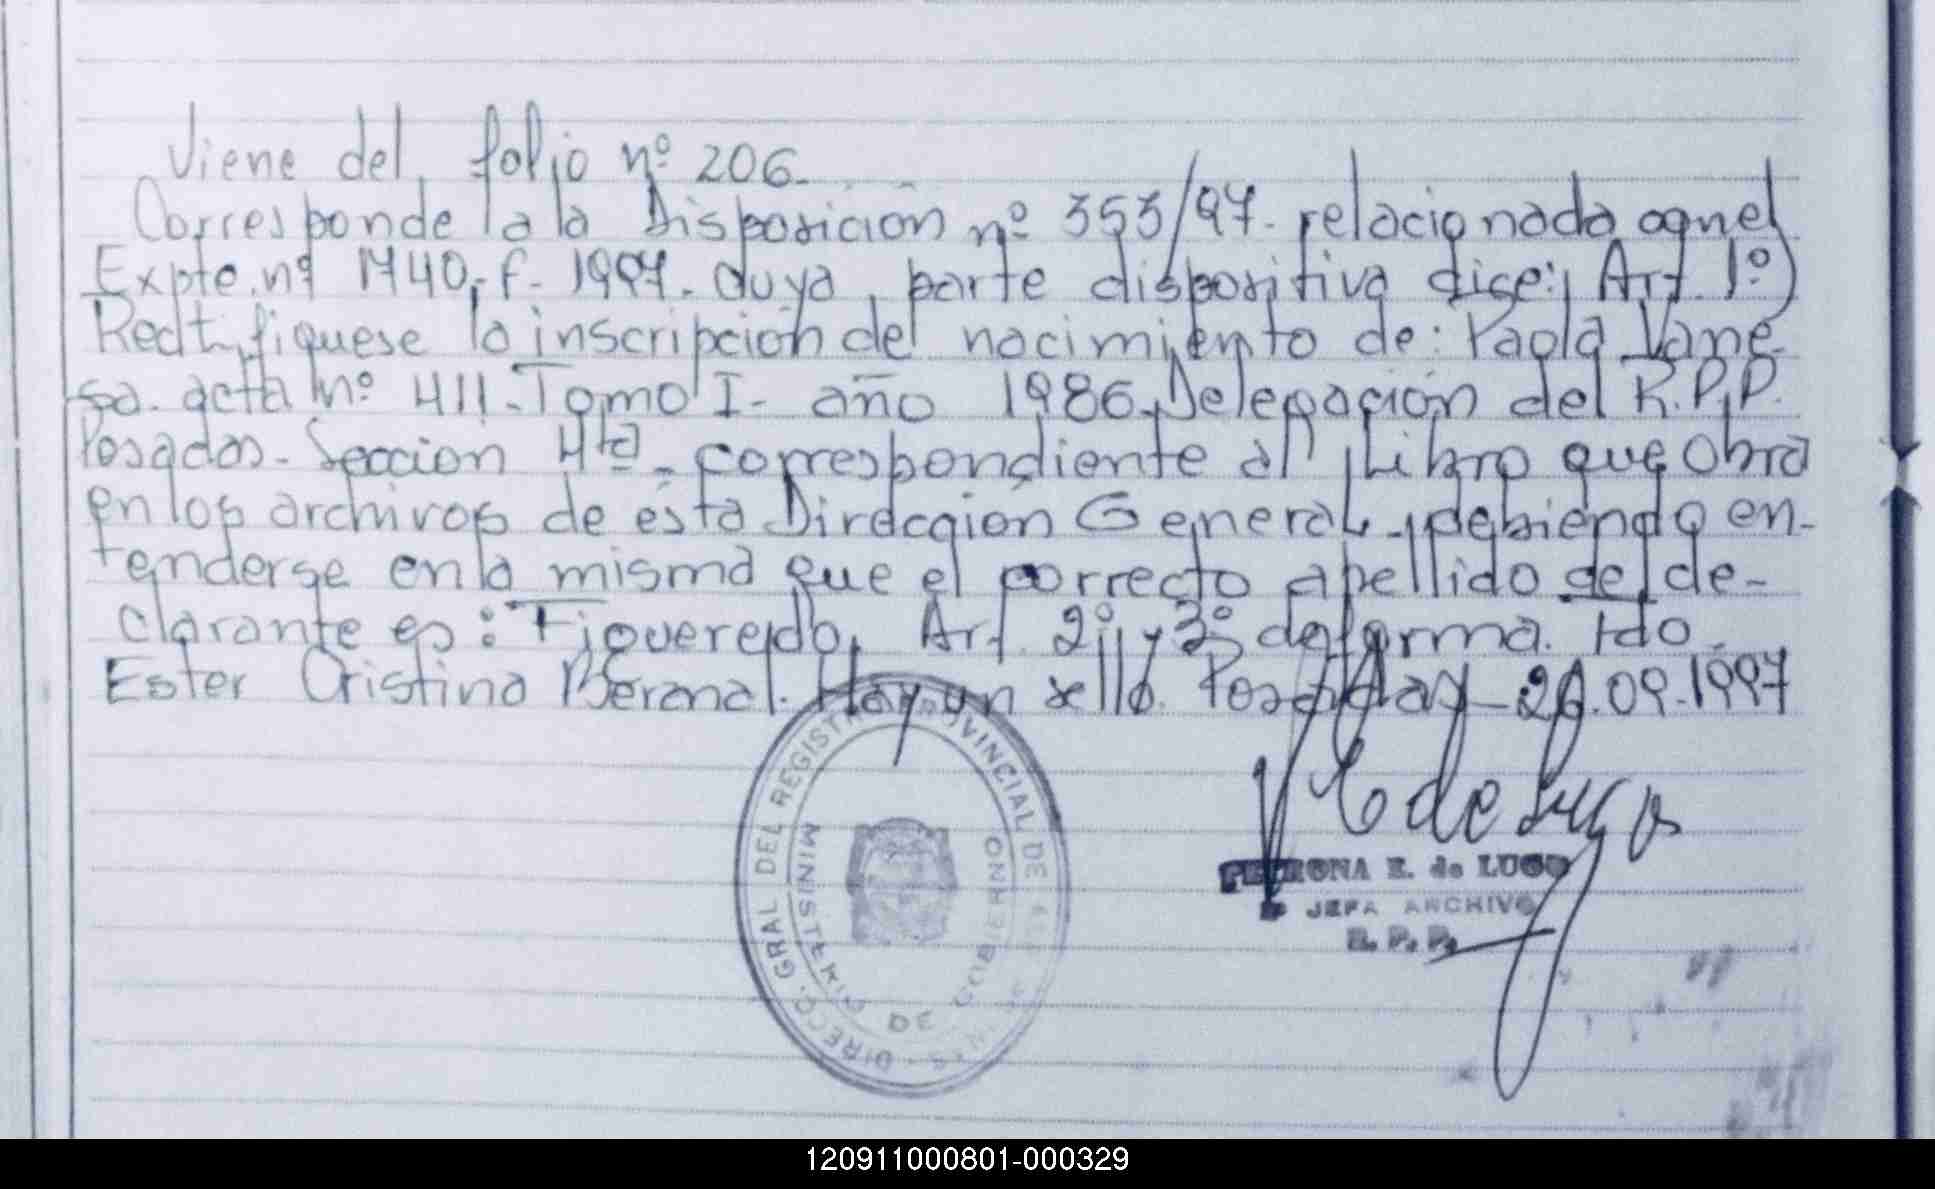 Viene del folio nº 206.
Corresponde a la Disposición nº 353/97. relacionada con el
Expte. nº 1740-f-1997. cuya parte dispositiva dice: Art. 1º)
Rectifiquese la inscripción del nacimiento de: Paola Vane-
sa. acta nº 411. Tomo I- año 1986. Delegación del R.P.P.
Posadas. Sección 4ta. correspondiente al Libro que obra
en los archivos de ésta Dirección General, debiendo en-
tenderse en la misma que el correcto apellido del de-
clarante es: Figueredo, Art. 2º y 3º de forma. Fdo.
Ester Cristina Bernal. Hay un sello. Posadas, 26.09.1997
DIRECC. GRAL DEL REGISTRO PROVINCIAL DE
MINISTERIO DE GOBIERNO
PETRONA E. de LUGO
JEFA ARCHIVO
R. P. P.
120911000801-000329